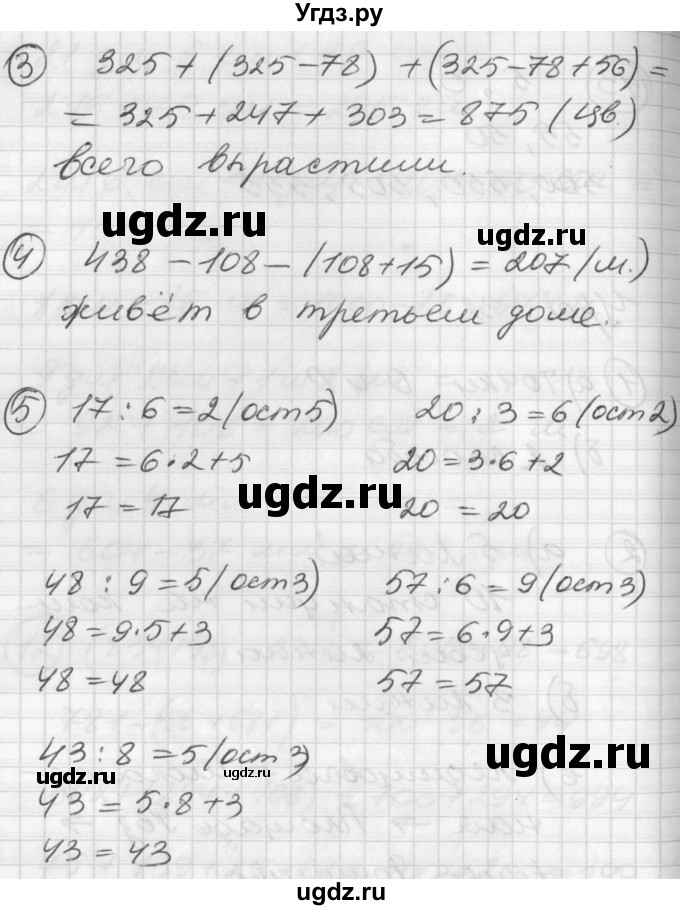 Угдз.ру
3 325 + (325-78) + (325-78+56) =
= 325 + 247 + 303 = 875 (цв.)
всего вырастили.
ugdz.ru
ugdz.ru
4 438 - 108 - (108+15) = 207 (м.)
живёт в третьем доме.
5 17 : 6 = 2 (ост 5) 20 : 3 = 6 (ост 2)
17 = 6·2+5 20 = 3·6+2
ugdz.ru
17 = 17 20 = 20
48 : 9 = 5 (ост 3) 57 : 6 = 9 (ост 3)
48 = 9·5+3 57 = 6·9+3
48 = 48 57 = 57
43 : 8 = 5 (ост 3)
ugdz.ru
ugdz.ru
ugdz.ru
43 = 5·8+3
43 = 43
ugdz.ru